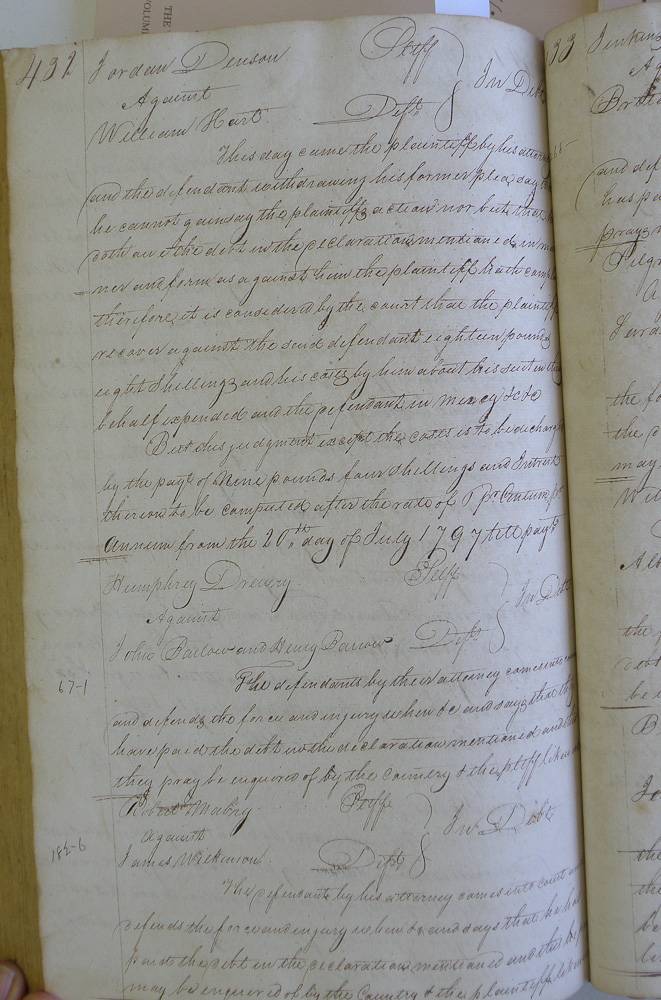 THE
VOLUM
432 Jordan Denson Plttff
Against In Debt
William Hart Deft
This day came the plaintiff by his attorn
and the defendant withdrawing his former plea, day
he cannot gainsay the plaintiffs action nor but that he
doth owe the debt in the declaration mencioned, in man
ner and form as against him the plaintiff hath compl
therefore it is considered by the court that the plaintiff
recover against the said defendant eighteen pounds
eight Shillings and his costs by him about his suit in this
behalf expended and the defendant in mercy &c &c
But this judgment except the costs is to be discharg
by the paymt of Nine pounds four shillings and Intrest
thereon to be computed after the rate of pr. Centum pr
Annum from the 20th day of July 1797 till paymt
Humphrey Drewry Pltff
Against In Debt
John Barlow and Henry Barlow Defts
67-1
The defendants by their attorney comes into
and defends the force and injury when &c and says that they
have paid the debt in the declaration mentioned and this
they pray be enquired of by the Country & the pltff likewise
Robert Mabry Pltff
Against In Debt
182-6
James Wilkinson Deft
The defendants by his attorney comes into court and
defends the force and injury when &c and says that he hath
paid the debt in the declaration mentioned and this he
may be enquired of by the Country & the plaintiff like
33 Jenkins
Ag
and def
has pa
prays
A
the fo
the d
may
Wil
the
debt
be
B
the
the
be